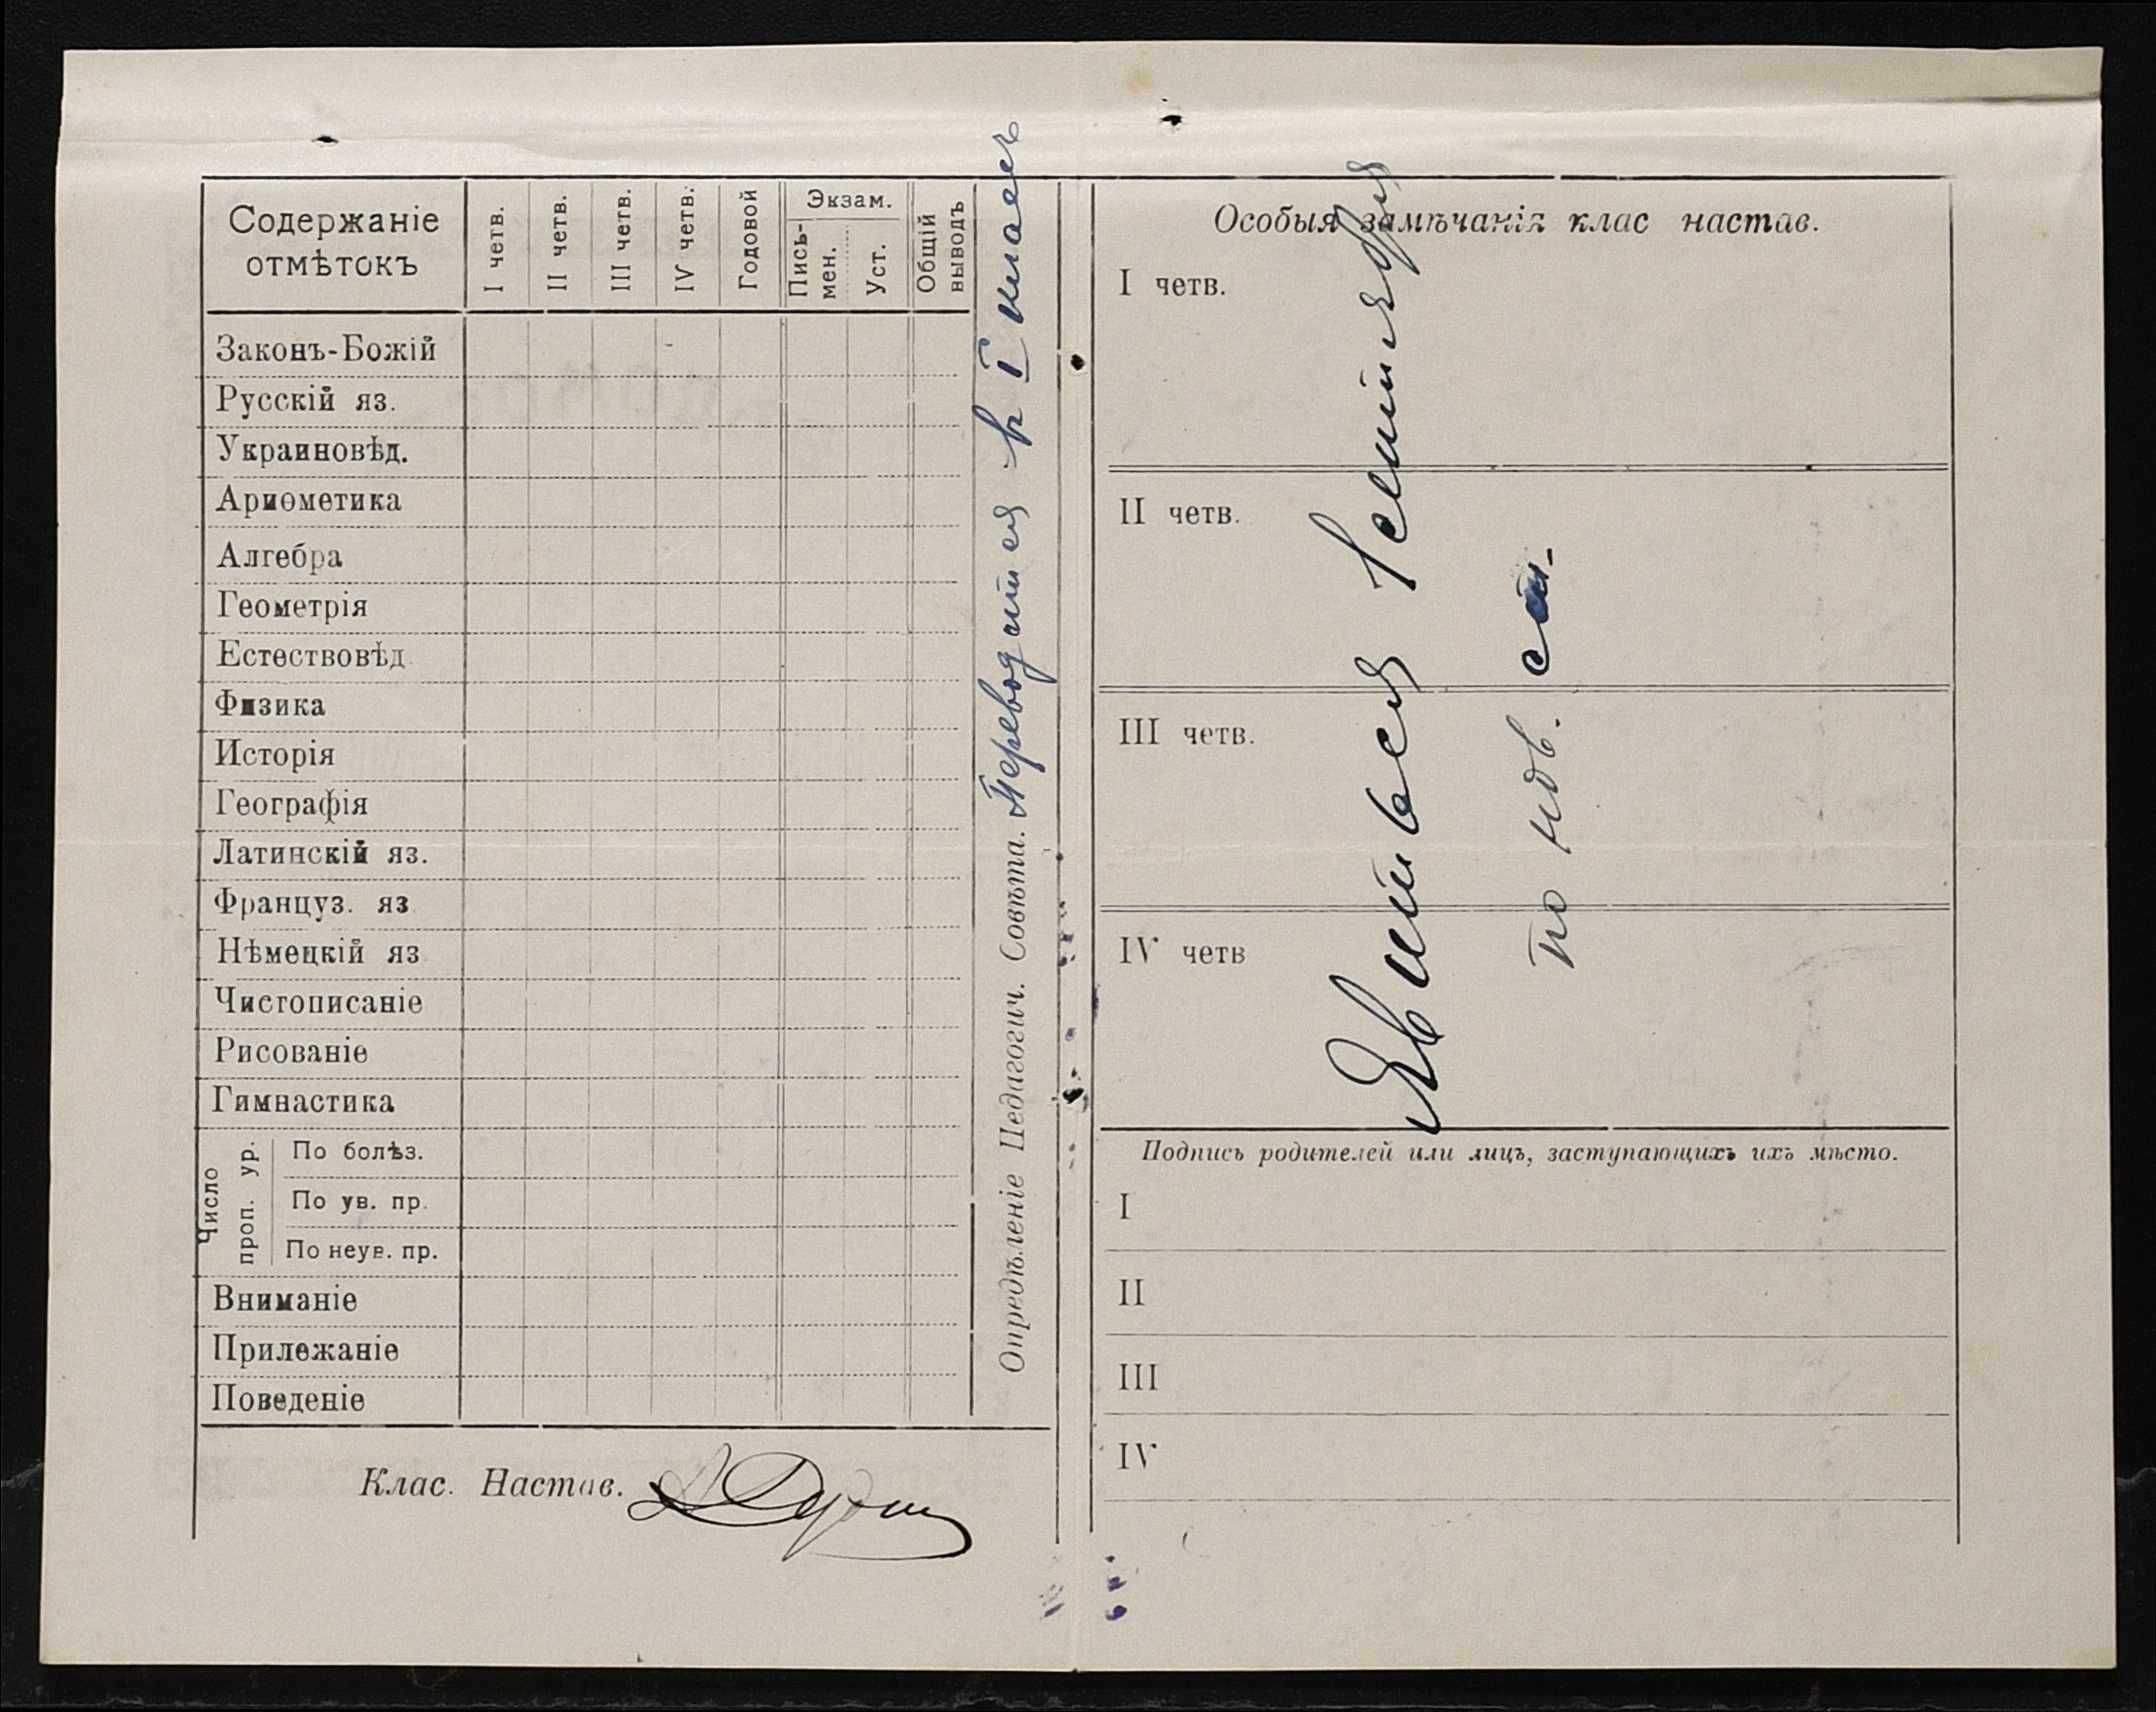 Содержаніе
отмѣтокъ
I четв.
II четв.
III четв.
IV четв.
Годовой
Экзам.
Пись-
мен.
Уст.
Общій
выводъ
Законъ-Божій
Русскій яз.
Украиновѣд.
Ариѳметика
Алгебра
Геометрія
Естествовѣд.
Физика
Исторія
Географія
Латинскій яз.
Француз. яз.
Нѣмецкій яз
Чистописаніе
Рисованіе
Гимнастика
Число
проп. ур.
По болѣз.
По ув. пр.
По неув. пр.
Вниманіе
Прилежаніе
Поведеніе
Опредѣленіе Педагогич. Совѣта. Переводится в I класс
Клас. Настав.
Особыя замѣчанія клас настав.
I четв.
II четв.
III четв.
IV четв
Явиться 1 сентября
по нов. ст.
Подпись родителей или лицъ, заступающихъ ихъ мѣсто.
I
II
III
IV